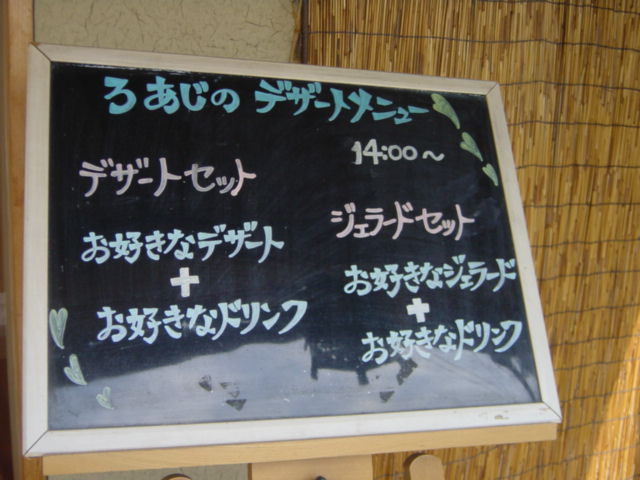 ろあじの デザートメニュー
14:00〜
デザートセット
お好きなデザート
+
お好きなドリンク
ジェラードセット
お好きなジェラード
+
お好きなドリンク